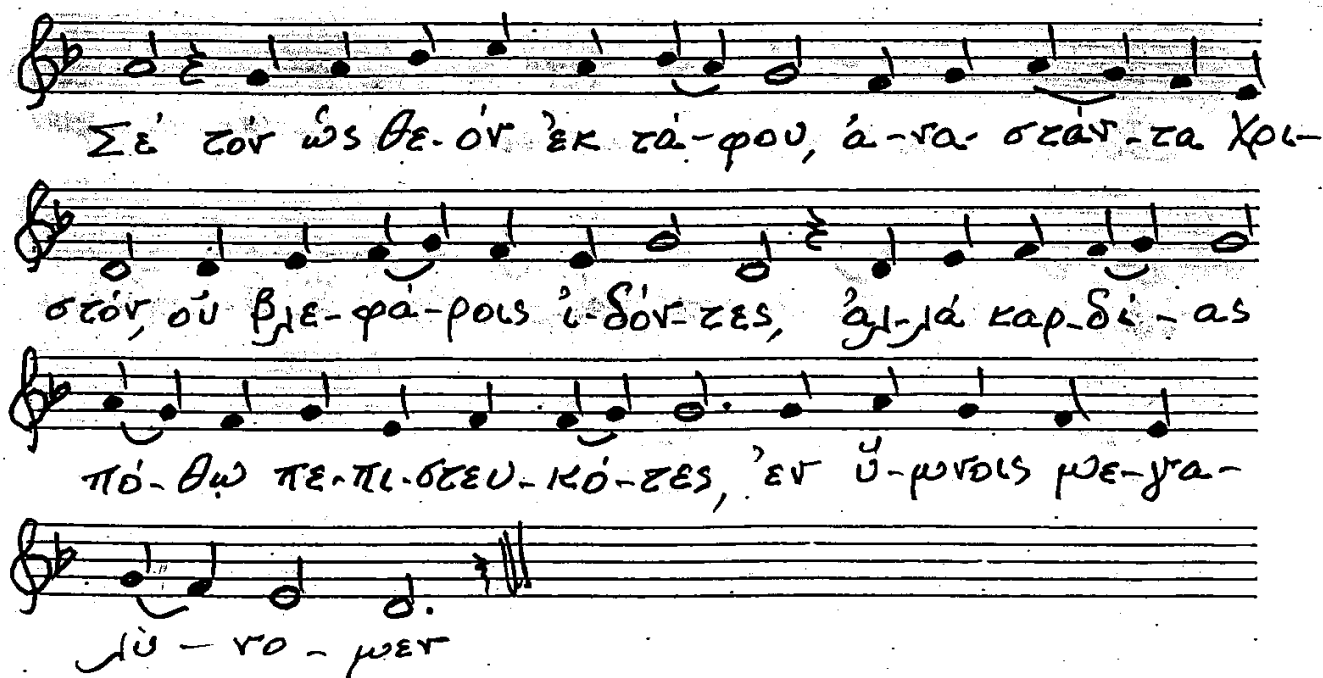 Σέ τόν ὡς θε-όν ἐκ τά-φου, ἀ-να-στάν-τα Χρι-
στόν, οὐ βλε-φά-ροις ἰ-δόν-τες, ἀλ-λά καρ-δί-ας
πό-θῳ πε-πι-στευ-κό-τες, ἐν ὕ-μνοις με-γα-
λύ-νο-μεν